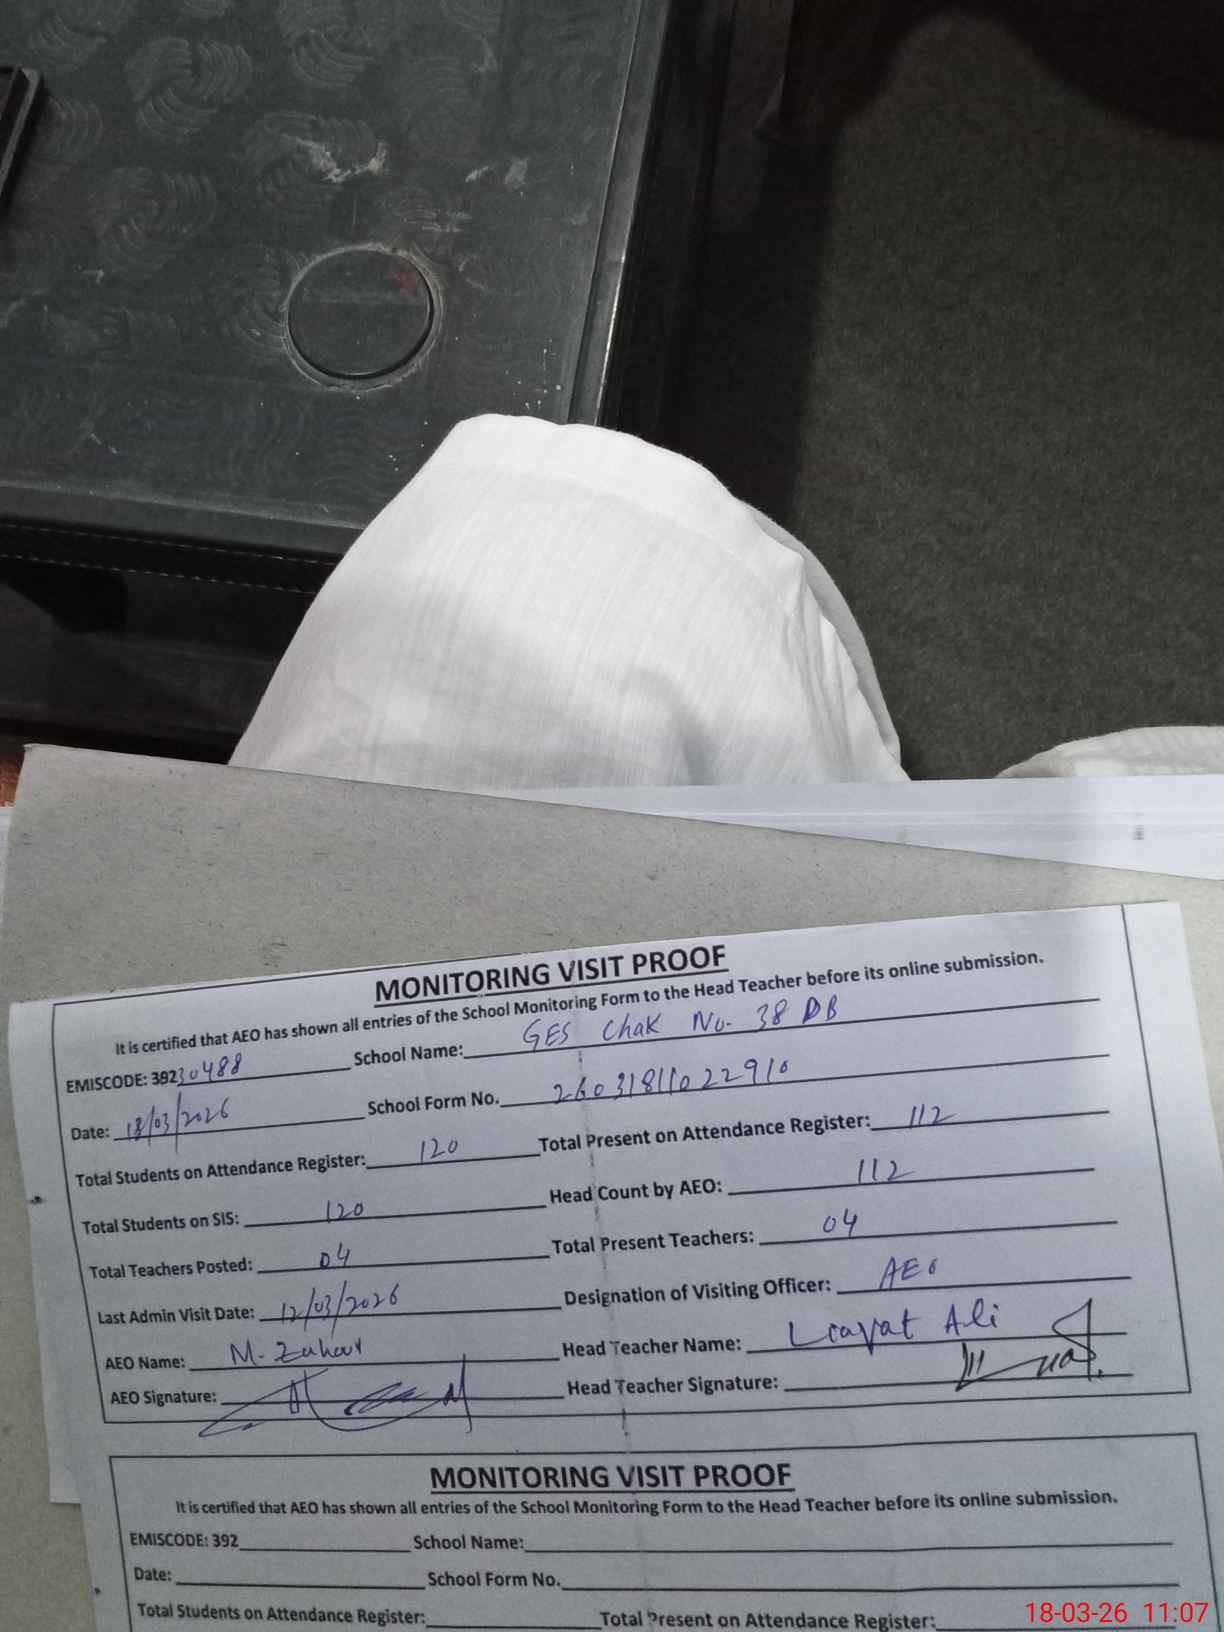 MONITORING VISIT PROOF
It is certified that AEO has shown all entries of the School Monitoring Form to the Head Teacher before its online submission.
EMISCODE: 39230488 School Name: GES Chak No. 38 DB
Date: 18/03/2026 School Form No. 26031811022910
Total Students on Attendance Register: 120 Total Present on Attendance Register: 112
Total Students on SIS: 120 Head Count by AEO: 112
Total Teachers Posted: 04 Total Present Teachers: 04
Last Admin Visit Date: 12/03/2026 Designation of Visiting Officer: AEO
AEO Name: M. Head Teacher Name: Liaqat Ali
AEO Signature: Head Teacher Signature:
MONITORING VISIT PROOF
It is certified that AEO has shown all entries of the School Monitoring Form to the Head Teacher before its online submission.
EMISCODE: 392 School Name:
Date: School Form No.
Total Students on Attendance Register: Total Present on Attendance Register:
18-03-26 11:07